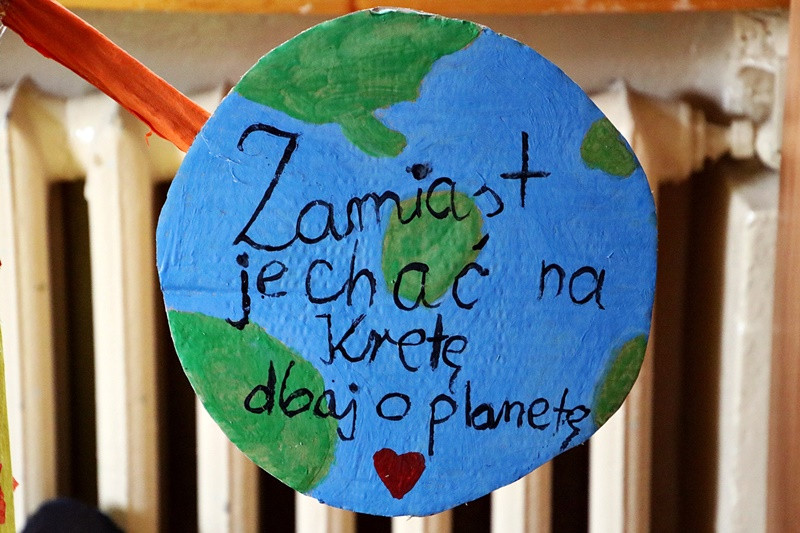 Zamiast
jechać na
Kretę
dbaj o planetę